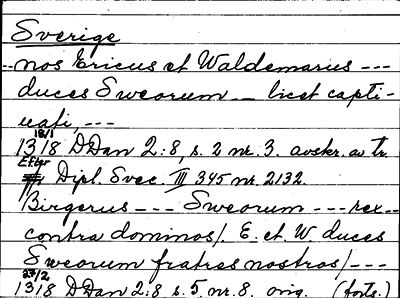 Sverige
--nos Ericus et Waldemarius ---
duces Sweorum -- licet capti-
uati, ---
18/1
1318 DDan 2:8, s. 2 nr. 3. avskr. av tr.
Efter
Dipl. Svec. III 345 nr. 2132.
Birgerus --- Sweorum --- rex --
contra dominos /. E. et. W duces
Sweorum fratres nostros /---
27/2
1318 DDan 2:8 s. 5 nr. 8. orig. (forts.)